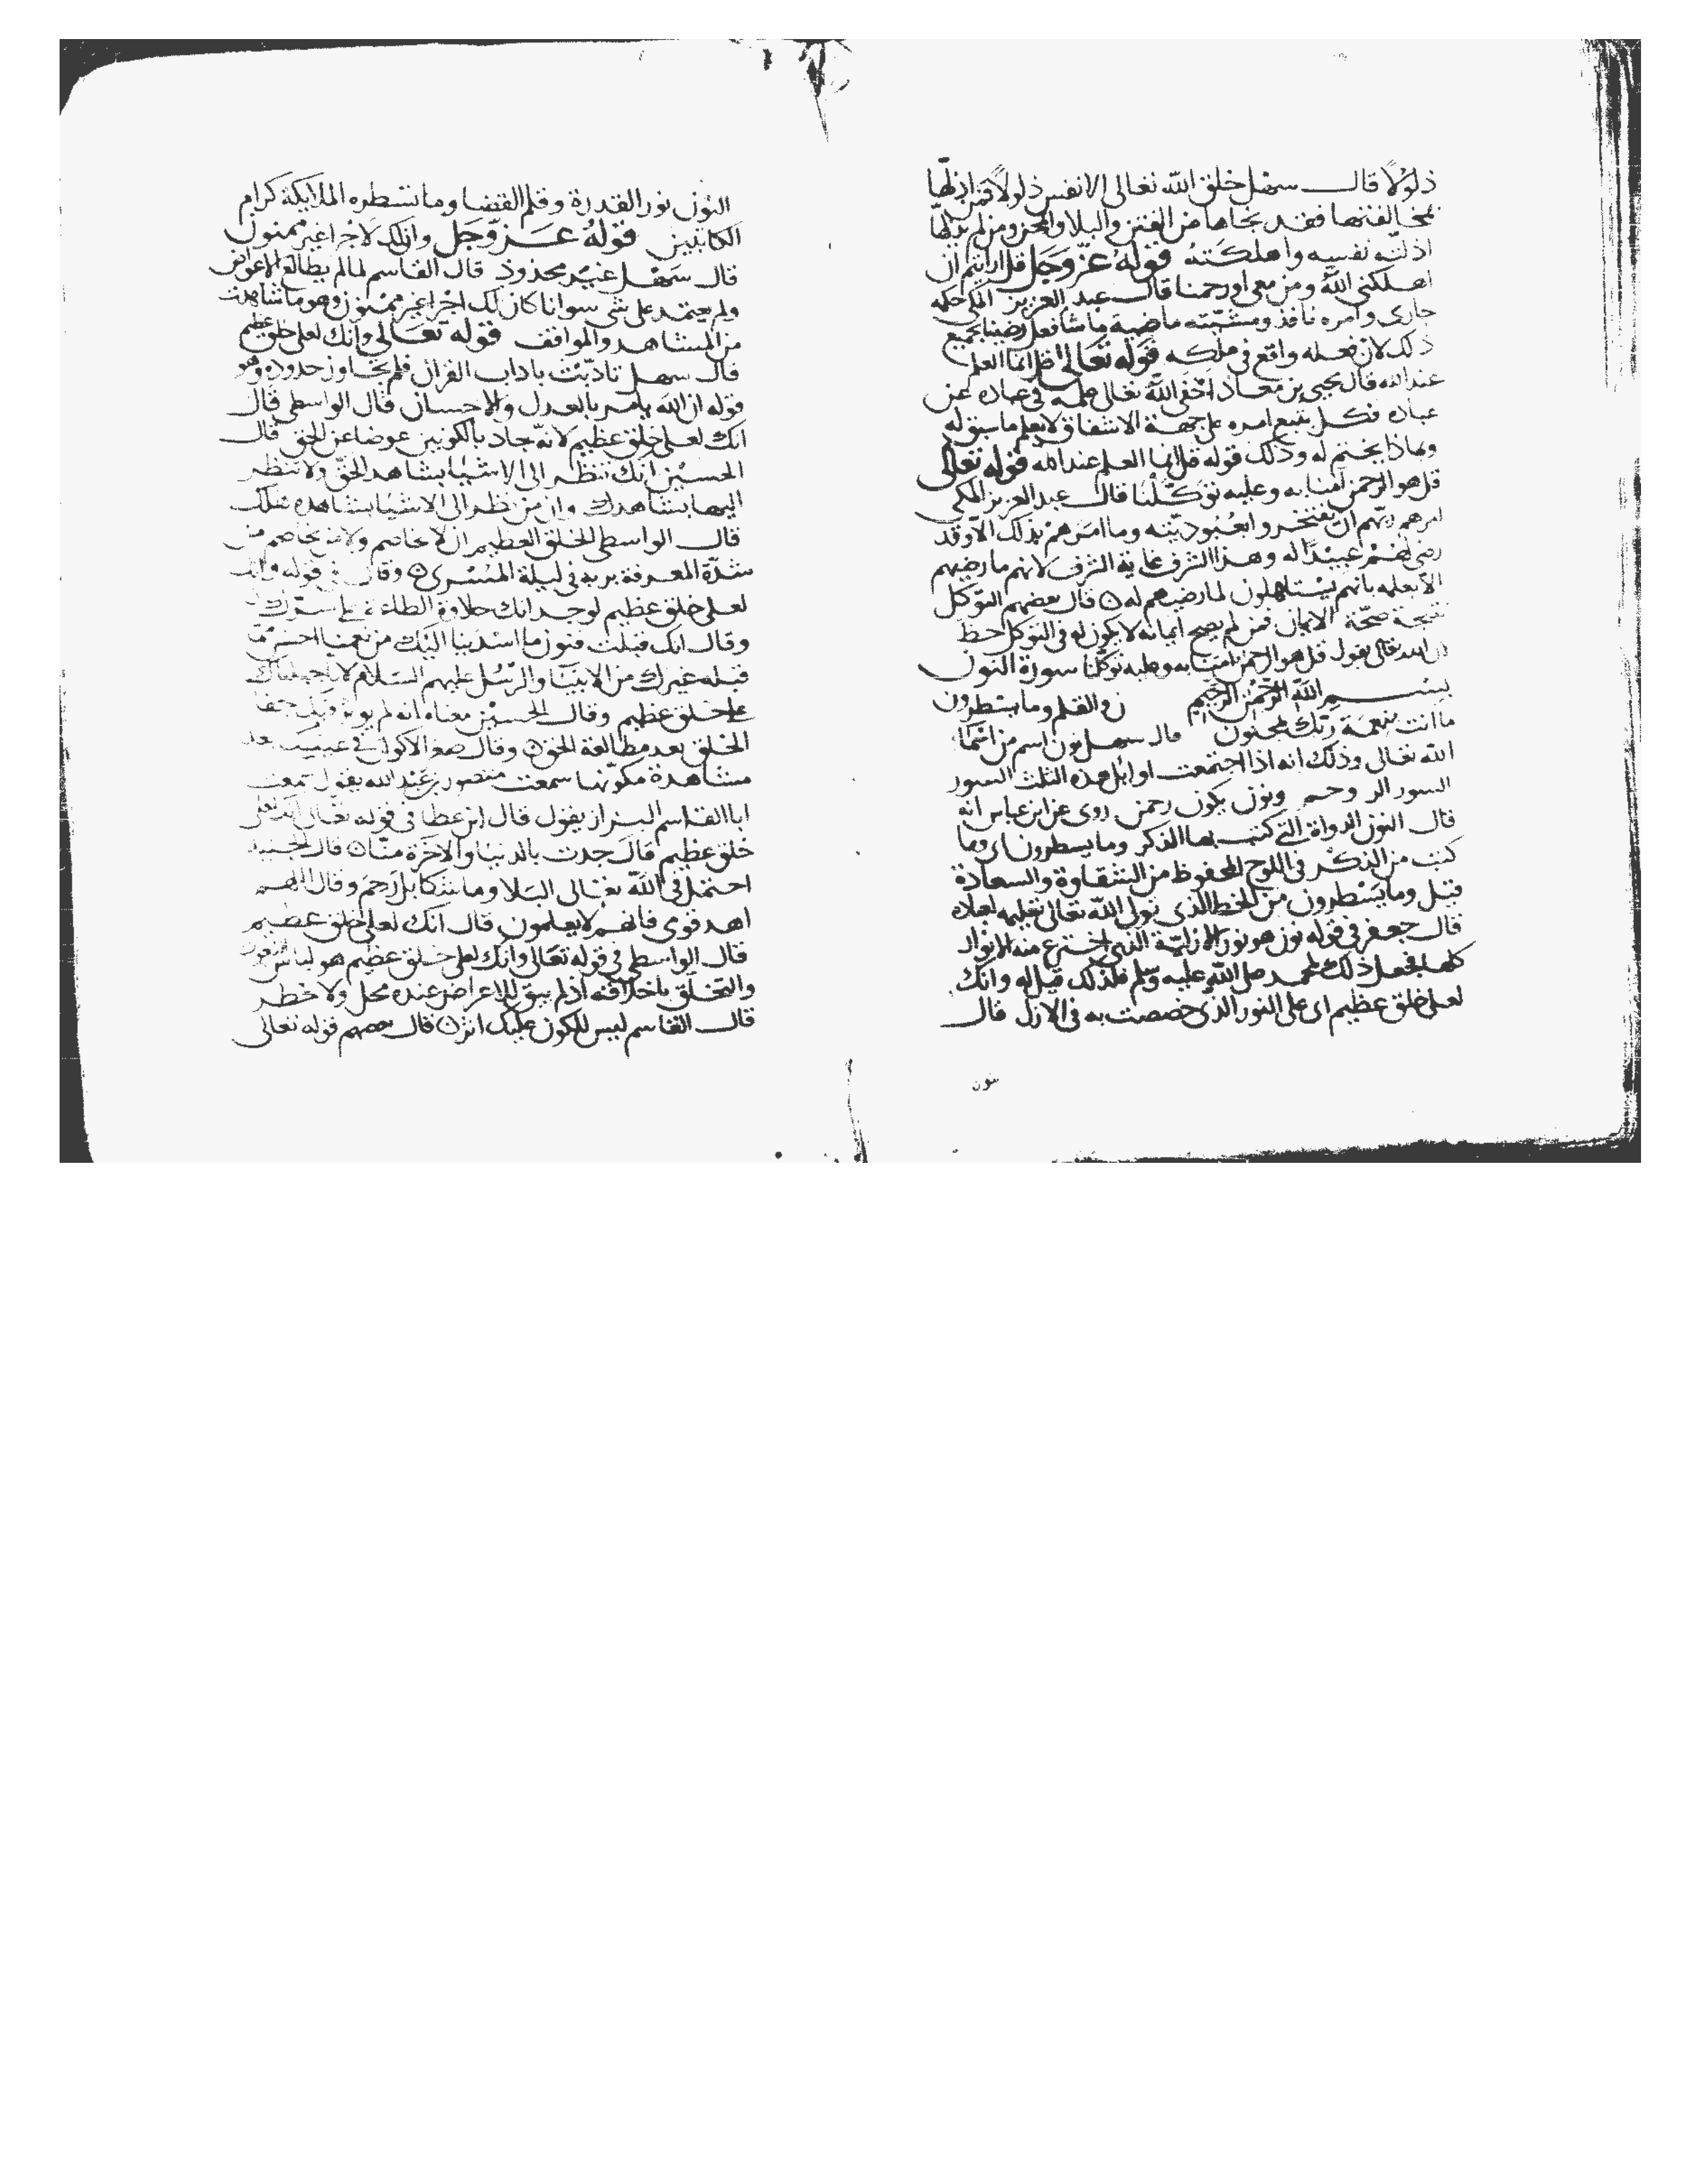 ذلولا قال سهل خلق الله تعالى الانفس ذلولا فمن اذلها
بمخالفتها فقد نجاها من الفتن والبلا والمحن ومن لم يذلها
اذلته نفسه واهلكته قوله عز وجل قل ارايتم ان
اهلكنى الله ومن معى او رحمنا قال عبد العزيز المكى حكمه
جارى وامره نافذ ومشيته ماضية ما شا فعل رضينا بجميع
ذلك لان فعله واقع فى ملكه قوله تعالى قل انما العلم
عند الله قال يحيى بن معاذ اخفى الله تعالى علمه فى عباده عن
عباده فكل يتبع امره على جهة الاشفاق لا يعلم ما سبق له
وماذا يختم له وذلك قوله قل انما العلم عند الله قوله تعالى
قل هو الرحمن آمنا به وعليه توكلنا قال عبد العزيز المكى
امرهم ربهم ان يفتخروا بعبوديته وما امرهم بذلك الا وقد
رضى لهم عبيدا له وهذا الشرف غاية الشرف لانهم ما رضيهم
الا بعلمه بانهم يستاهلون لما رضيهم له ن قال بعضهم التوكل
نتيجة صحة الايمان فمن لم يصح ايمانه لا يكون له فى التوكل حظ
ان الله تعالى يقول قل هو الرحمن آمنا به وعليه توكلنا سورة النون
بسم الله الرحمن الرحيم ن والقلم وما يسطرون
ما انت بنعمة ربك بمجنون قال سهل نون اسم من اسما
الله تعالى وذلك انه اذا اجتمعت اوايل هذه الثلث السور
السور الر وحم ونون يكون رحمن روى عن ابن عباس انه
قال النون الدواة التى كتب بها الذكر وما يسطرون اى وما
كتب من الذكر فى اللوح المحفوظ من الشقاوة والسعادة
قيل وما يسطرون من الخط الذى تولى الله تعالى تعليمه لعباده
قال جعفر فى قوله نون هو نور الازلية الذى اخترع منه الانوار
كلها فجعل ذلك لمحمد صلى الله عليه وسلم فلذلك قيل له وانك
لعلى خلق عظيم اى على النور الذى خصصت به فى الازل قال
النون نور القدرة وقلم القضا وما تسطره الملايكة كرام
الكاتبين قوله عز وجل وان لك لاجرا غير ممنون
قال سهل غير محذوذ قال القاسم لما لم يطالع الاعواض
ولم يعتمد على شى سوانا كان لك اجرا غير ممنون وهو ما شاهدت
من المشاهد والمواقف قوله تعالى وانك لعلى خلق عظيم
قال سهل تادبت باداب القران فلم تجاوز حدوده وهو
قوله ان الله يامر بالعدل والاحسان قال الواسطى قال
انك لعلى خلق عظيم لانه جاد بالكونين عوضا عن الحق قال
الحسين انك تنظر الى الاشيا بشاهد الحق ولا تنظر
اليها بشاهدك وان من نظر الى الاشيا بشاهده هلك
قال الواسطى الخلق العظيم ان لا يخاصم ولا يخاصم من
شدة المعرفة بربه فى ليلة المسرى ن وقال فى قوله وانك
لعلى خلق عظيم لوجدانك حلاوة المطالعة على سرك
وقال انك قبلت فنون ما اسدينا اليك من نعمنا احسن مما
قبله غيرك من الانبيا والرسل عليهم السلام
على خلق عظيم وقال الحسين معناه انه لم يوثر فيك جفا
الخلق بعد مطالعة الحق ن وقال صغر الاكوان فى عينيك بعد
مشاهدة مكونها سمعت منصور بن عبد الله يقول سمعت
ابا القاسم البزاز يقول قال ابن عطا فى قوله تعالى انك لعلى
خلق عظيم قال جدت بالدنيا والاخرة منا ن قال الجنيد
احتمل فى الله تعالى البلا وما شكا بل رحم وقال اللهم
اهد قومى فانهم لا يعلمون قال انك لعلى خلق عظيم
قال الواسطى فى قوله تعالى وانك لعلى خلق عظيم هو لباس النعوت
والتخلق باخلاقه اذ لم يبق للاعراض عنده محل ولا خطر
قال القاسم ليس للكون عليك اثر ن قال بعضهم قوله تعالى